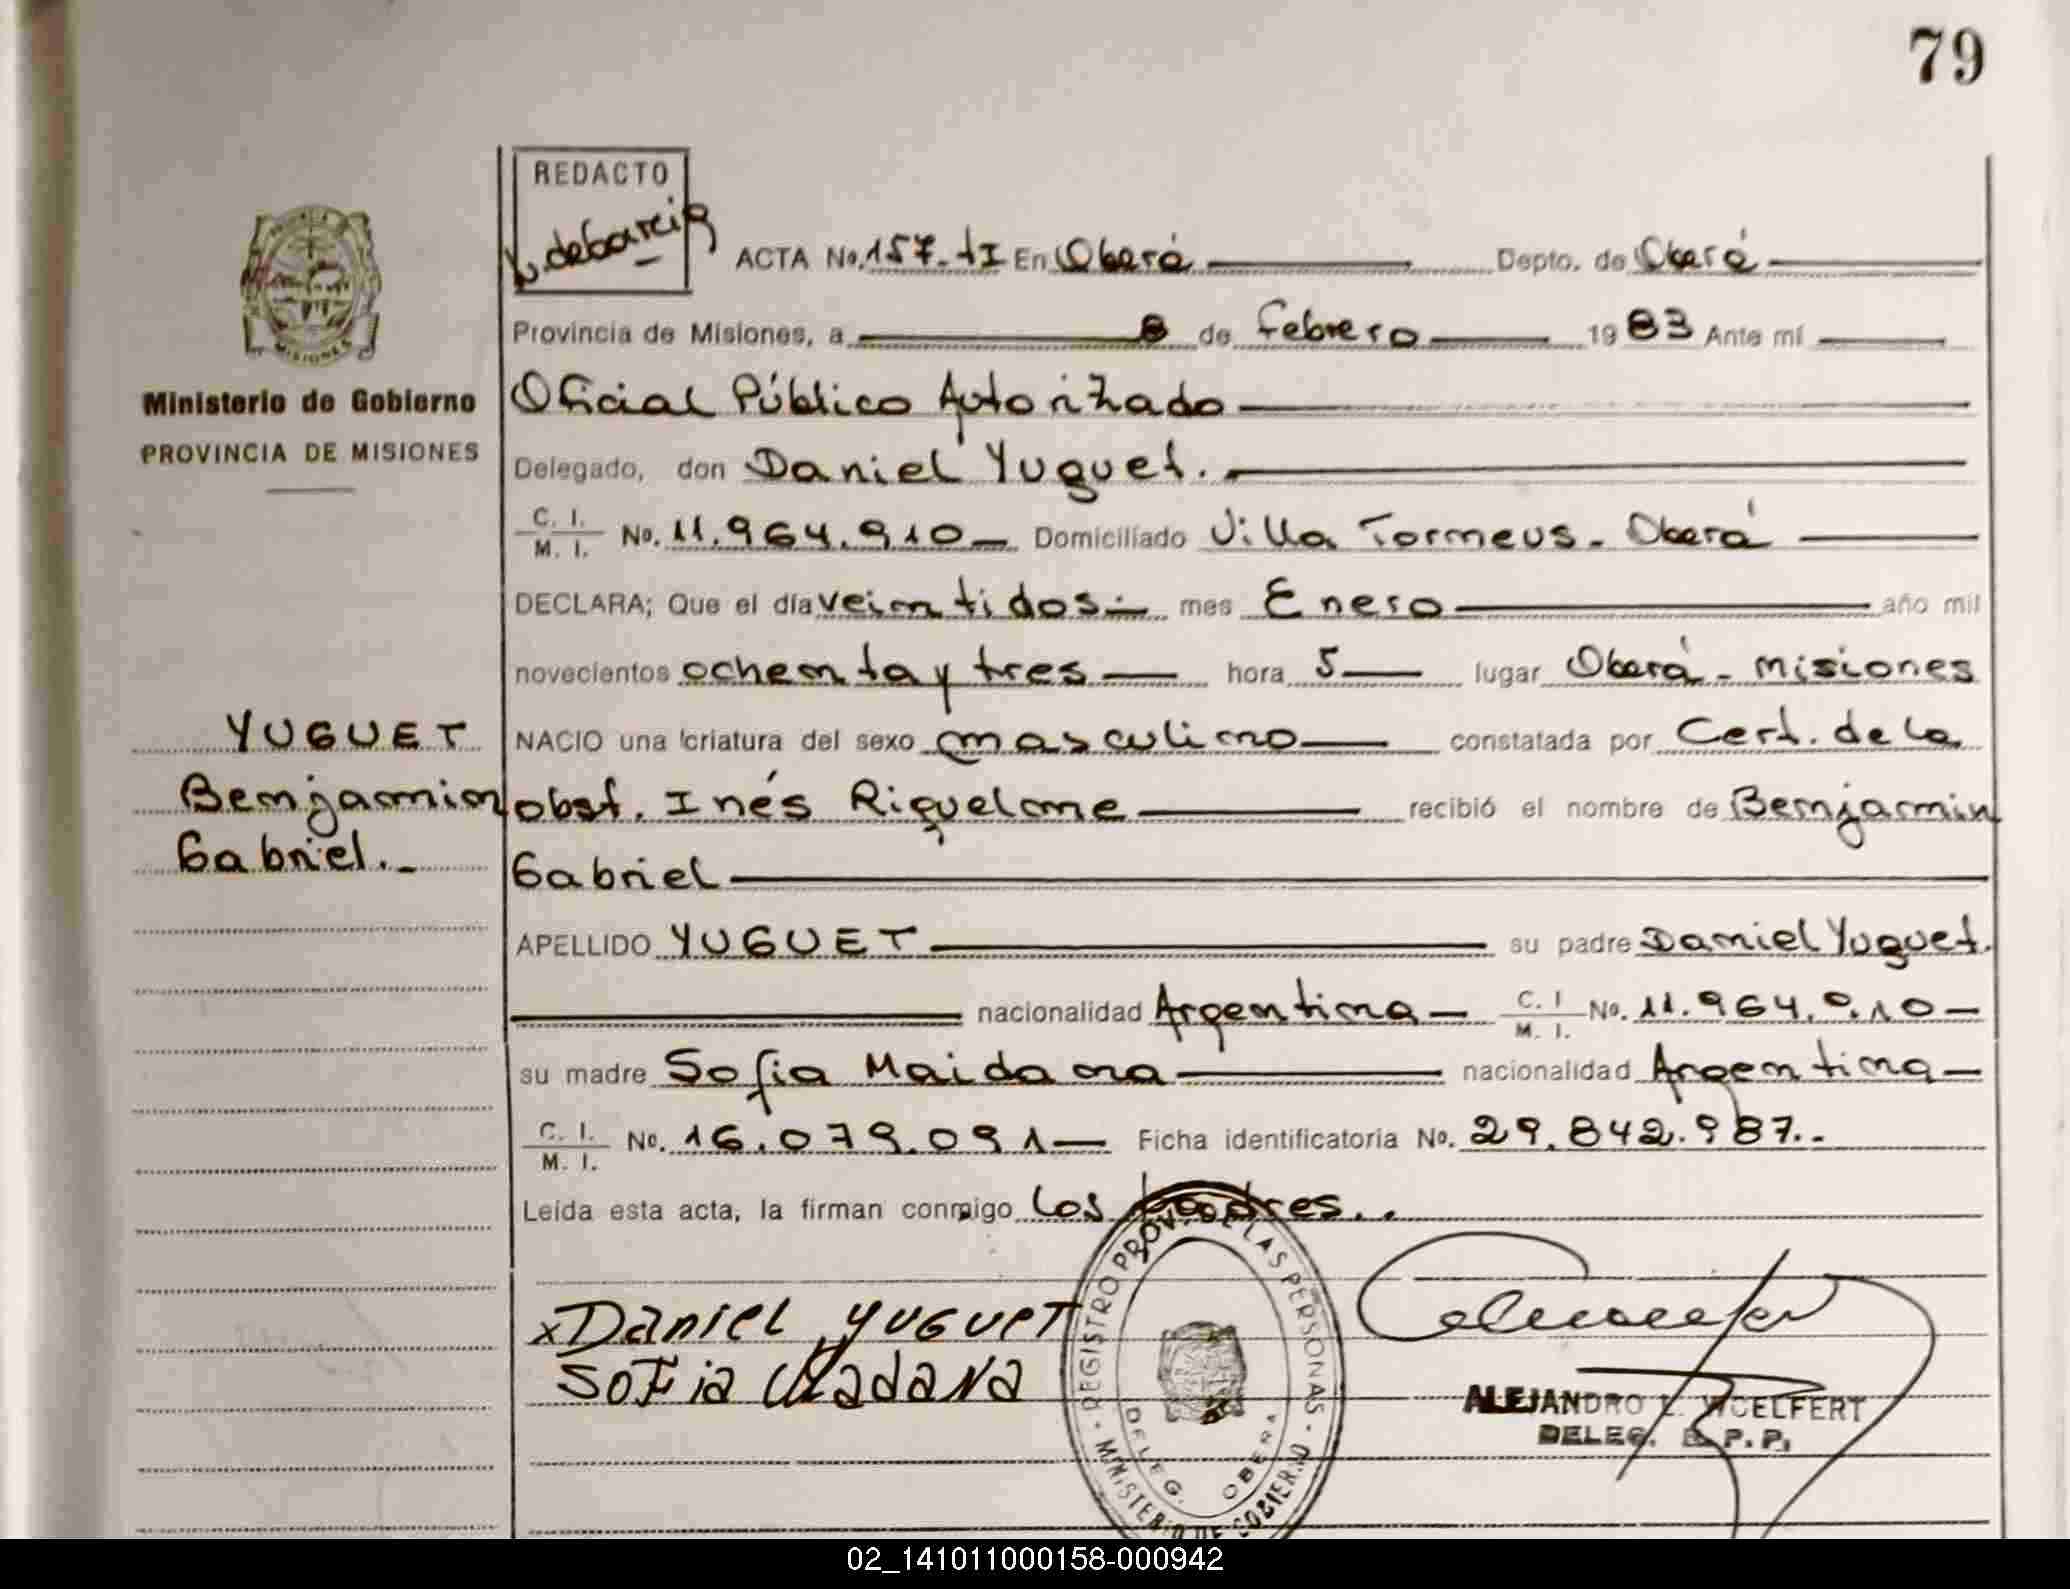 79
REDACTO
ACTA No. 157-tI En Oberá Depto. de Oberá
Provincia de Misiones, a 8 de Febrero 1983 Ante mí
Ministerio de Gobierno
PROVINCIA DE MISIONES
MISIONES
Oficial Público Autorizado
Delegado, don Daniel Yuguet.
C. I. M. I. No. 11.964.910 Domiciliado Villa Torneus - Oberá
DECLARA; Que el día veintidos mes Enero año mil
novecientos ochenta y tres hora 5 lugar Oberá - Misiones
NACIO una criatura del sexo masculino constatada por Cert. de la
obst. Inés Riquelme recibió el nombre de Benjamin
Gabriel
YUGUET
Benjamin
Gabriel.
APELLIDO YUGUET su padre Daniel Yuguet.
nacionalidad Argentina C. I M. I. No. 11.964.910
su madre Sofia Maidana nacionalidad Argentina
C. I. M. I. No. 16.079.091 Ficha identificatoria No. 29.842.987.
Leída esta acta, la firman conmigo los padres..
xDaniel YUGUET
SoFia Madana
REGISTRO PROV. DE LAS PERSONAS
MINISTERIO DE GOBIERNO
DELEG. OBERA
ALEJANDRO L. WOELFERT
DELEG. R. P. P.
02_141011000158-000942